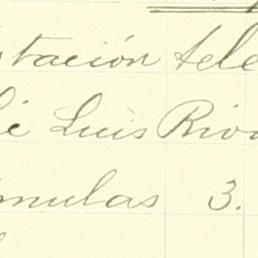 stación tele
Luis Riv
mulas 3.